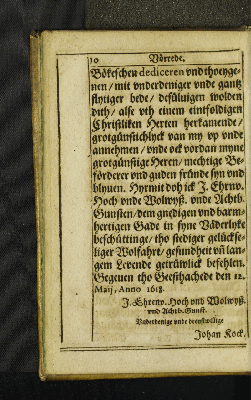 10 Vörrede.
Bökeschen dediceren vnd thoeyge-
nen / mit vnderdeniger vnde gantz
flytiger bede / desülvigen wolden
duth / alse vth einem eintfoldigen
Christliken Herten herkamende /
grotgünstichlyck van my vp vnde
annehmen / vnde ock vordan myne
grotgünstige Heren / mechtige Be-
förderer vnd guden fründe syn vnd
blyuen. Hyrmit doh ick J. Ehrenv.
Hoch vnde Wolwyß. vnde Achtb.
Gunsten / dem gnedigen vnd barm-
hertigen Gade in syne Väderlyke
beschüttinge / tho stediger gelückse-
liger Wolfahrt / gesundheit vñ lan-
gem Levende getrüwlick befehlen.
Gegeuen tho Geesthachede den 12.
Maij, Anno 1618.
J. Ehrenv. Hoch vnd Wolwyß.
vnd Achtb. Gunst.
Vnderdenige vnde deenstwillige
Johan Kock.